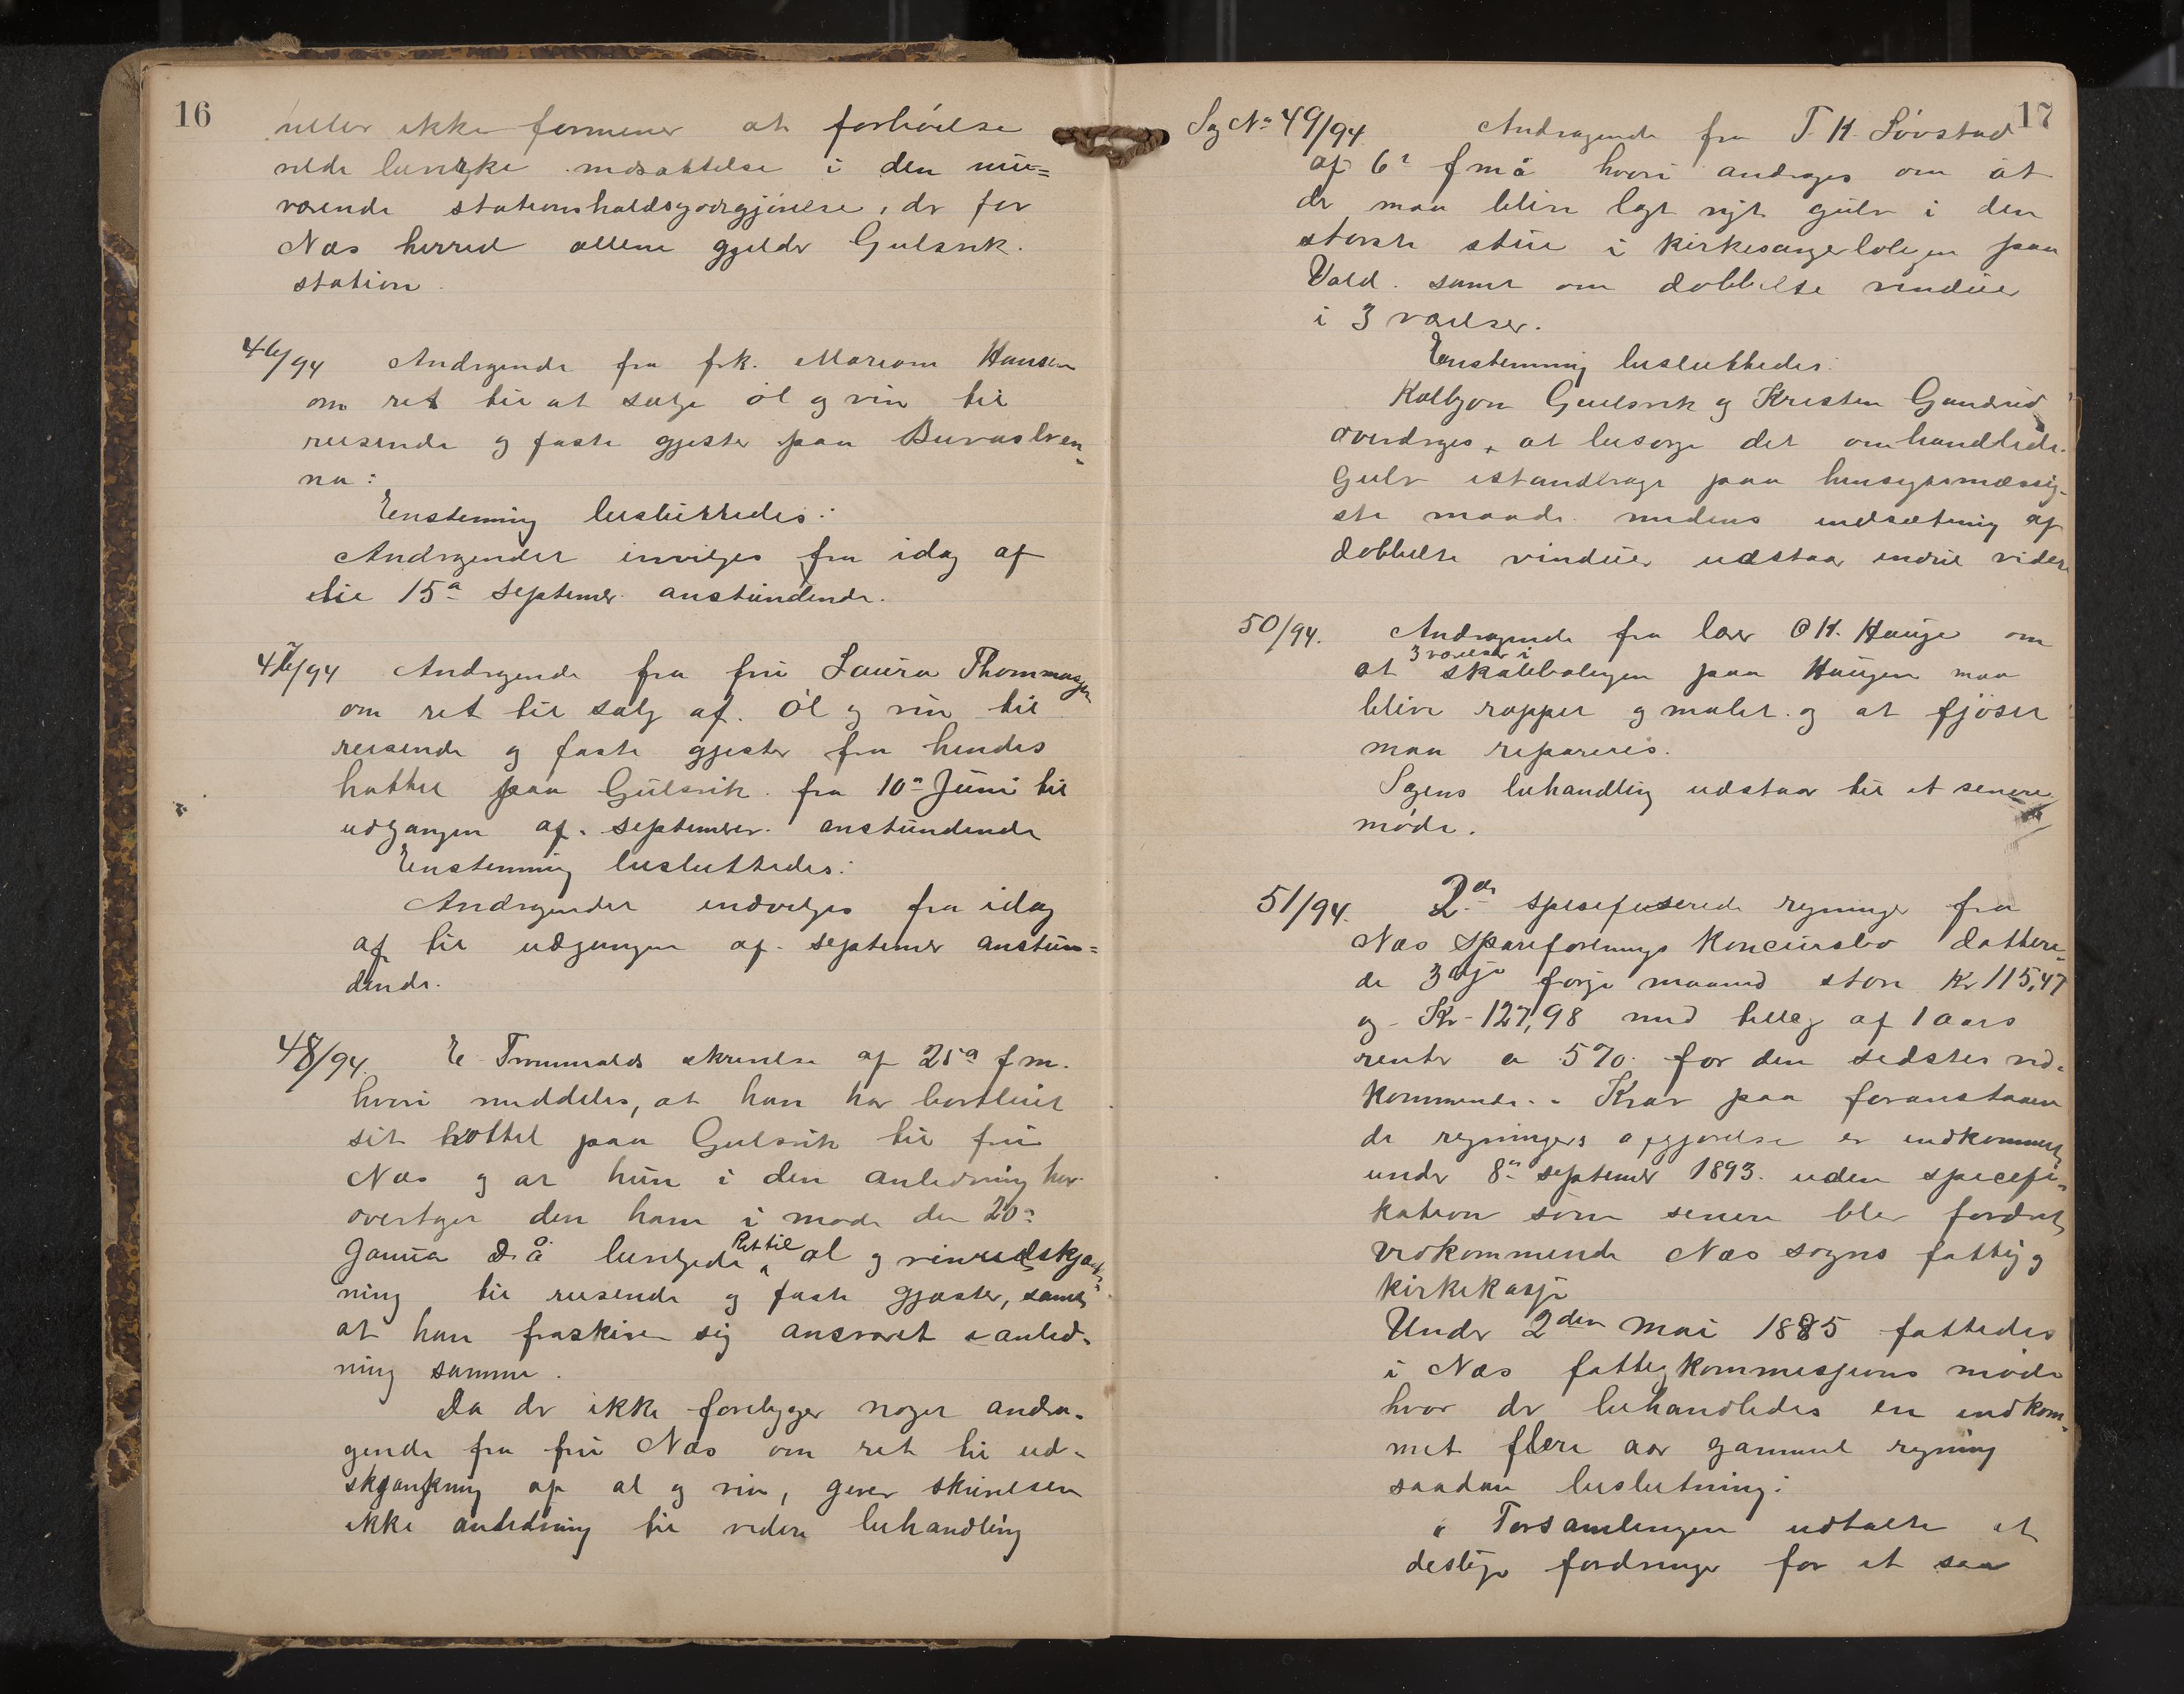 16
heller ikke formener at forhöielse
eller lunzke nedsættelse i den nu=
værende stationsholdsgodtgjörelse, der for
Næs herred allene gjelder Gulsvik
station.
46/94 Andragende fra frk. Mariane Hansen
om ret til at sælge öl og vin til
reisende og faste gjester paa Buvasbren-
na:
Eenstemmig besluttedes:
Andragendet invilges fra idag af
til 15a september anstundende.
47/94 Andragende fra fru Laura Thommasen
om ret til salg af. öl og vin til
reisende og faste gjester fra hendes
hottel paa Gulsvik. fra 10n Juni til
udgangen af. september. anstundende
Eenstemmig besluttedes:
Andragendet indvilges fra idag
af til udgangen af. september anstun=
dende.
48/94. E Trommalds skrivelse af 25a f m.
hvori meddeles, at han har bortleiet
sit hottel paa Gulsvik til fru
Næs og at hun i den anledning har
overtaget den ham i møde den 20n
Janua d. å bevilgede Ret til öl og vinudskjænk-
ning til reisende og faste gjæster, samt
at han fraskriver sig ansvaret i anled-
ning samme.
Da der ikke foreligger noget andra-
gende fra fru Næs om ret til ud-
skjænkning af öl og vin, giver skrivelsen
ikke anledning til videre behandling
17
Sag No 49/94. Andragende fra T. K. Lövstad
af 6n f må hvori andrages om at
der maa blive lagt nyt gulv i den
störste stue i kirkesangerboligen paa
Vold. samt om dobbelte vinduer
i 3 værelser.
Eenstemmig besluttedes:
Kolbjørn Gulsvik og Kristen Gandrud
overdrages, at besørge det omhandlede
gulv istandbragt paa hensigtsmæssig-
ste maade. medens indsætning af
dobbelte vinduer udstaar indtil videre
50/94. Andragende fra lærer O K. Hauge om
at 3 værelser i skolebolegen paa Haugen maa
blive rappet og malet. og at fjöset
maa repareres.
Sagens behandling udstaar til et senere
møde.
51/94. 2de spesefiserede regninger fra
Næs Spareforenings Koncursbo dattere-
de 3dje forge maaned store Kr 115,47
og Kr 127,98 med tillæg af 1 aars
renter a 5%. for den sidstes ved-
kommende. - Krav paa foranstaaen
de regningers opgjørelse er indkommet
under 8n septemer 1893. uden specefi-
kation som senere blev fordret
vedkommende Næs sogns fattig og
kirkekasse
Under 2den mai 1885 fattedes
i Næs fattigkommisjons møde
hvor der behandledes en indkom-
met flere aar gammel regning
saadan beslutning:
"Forsamlingen udtalte at
deslige fordringer for et saa